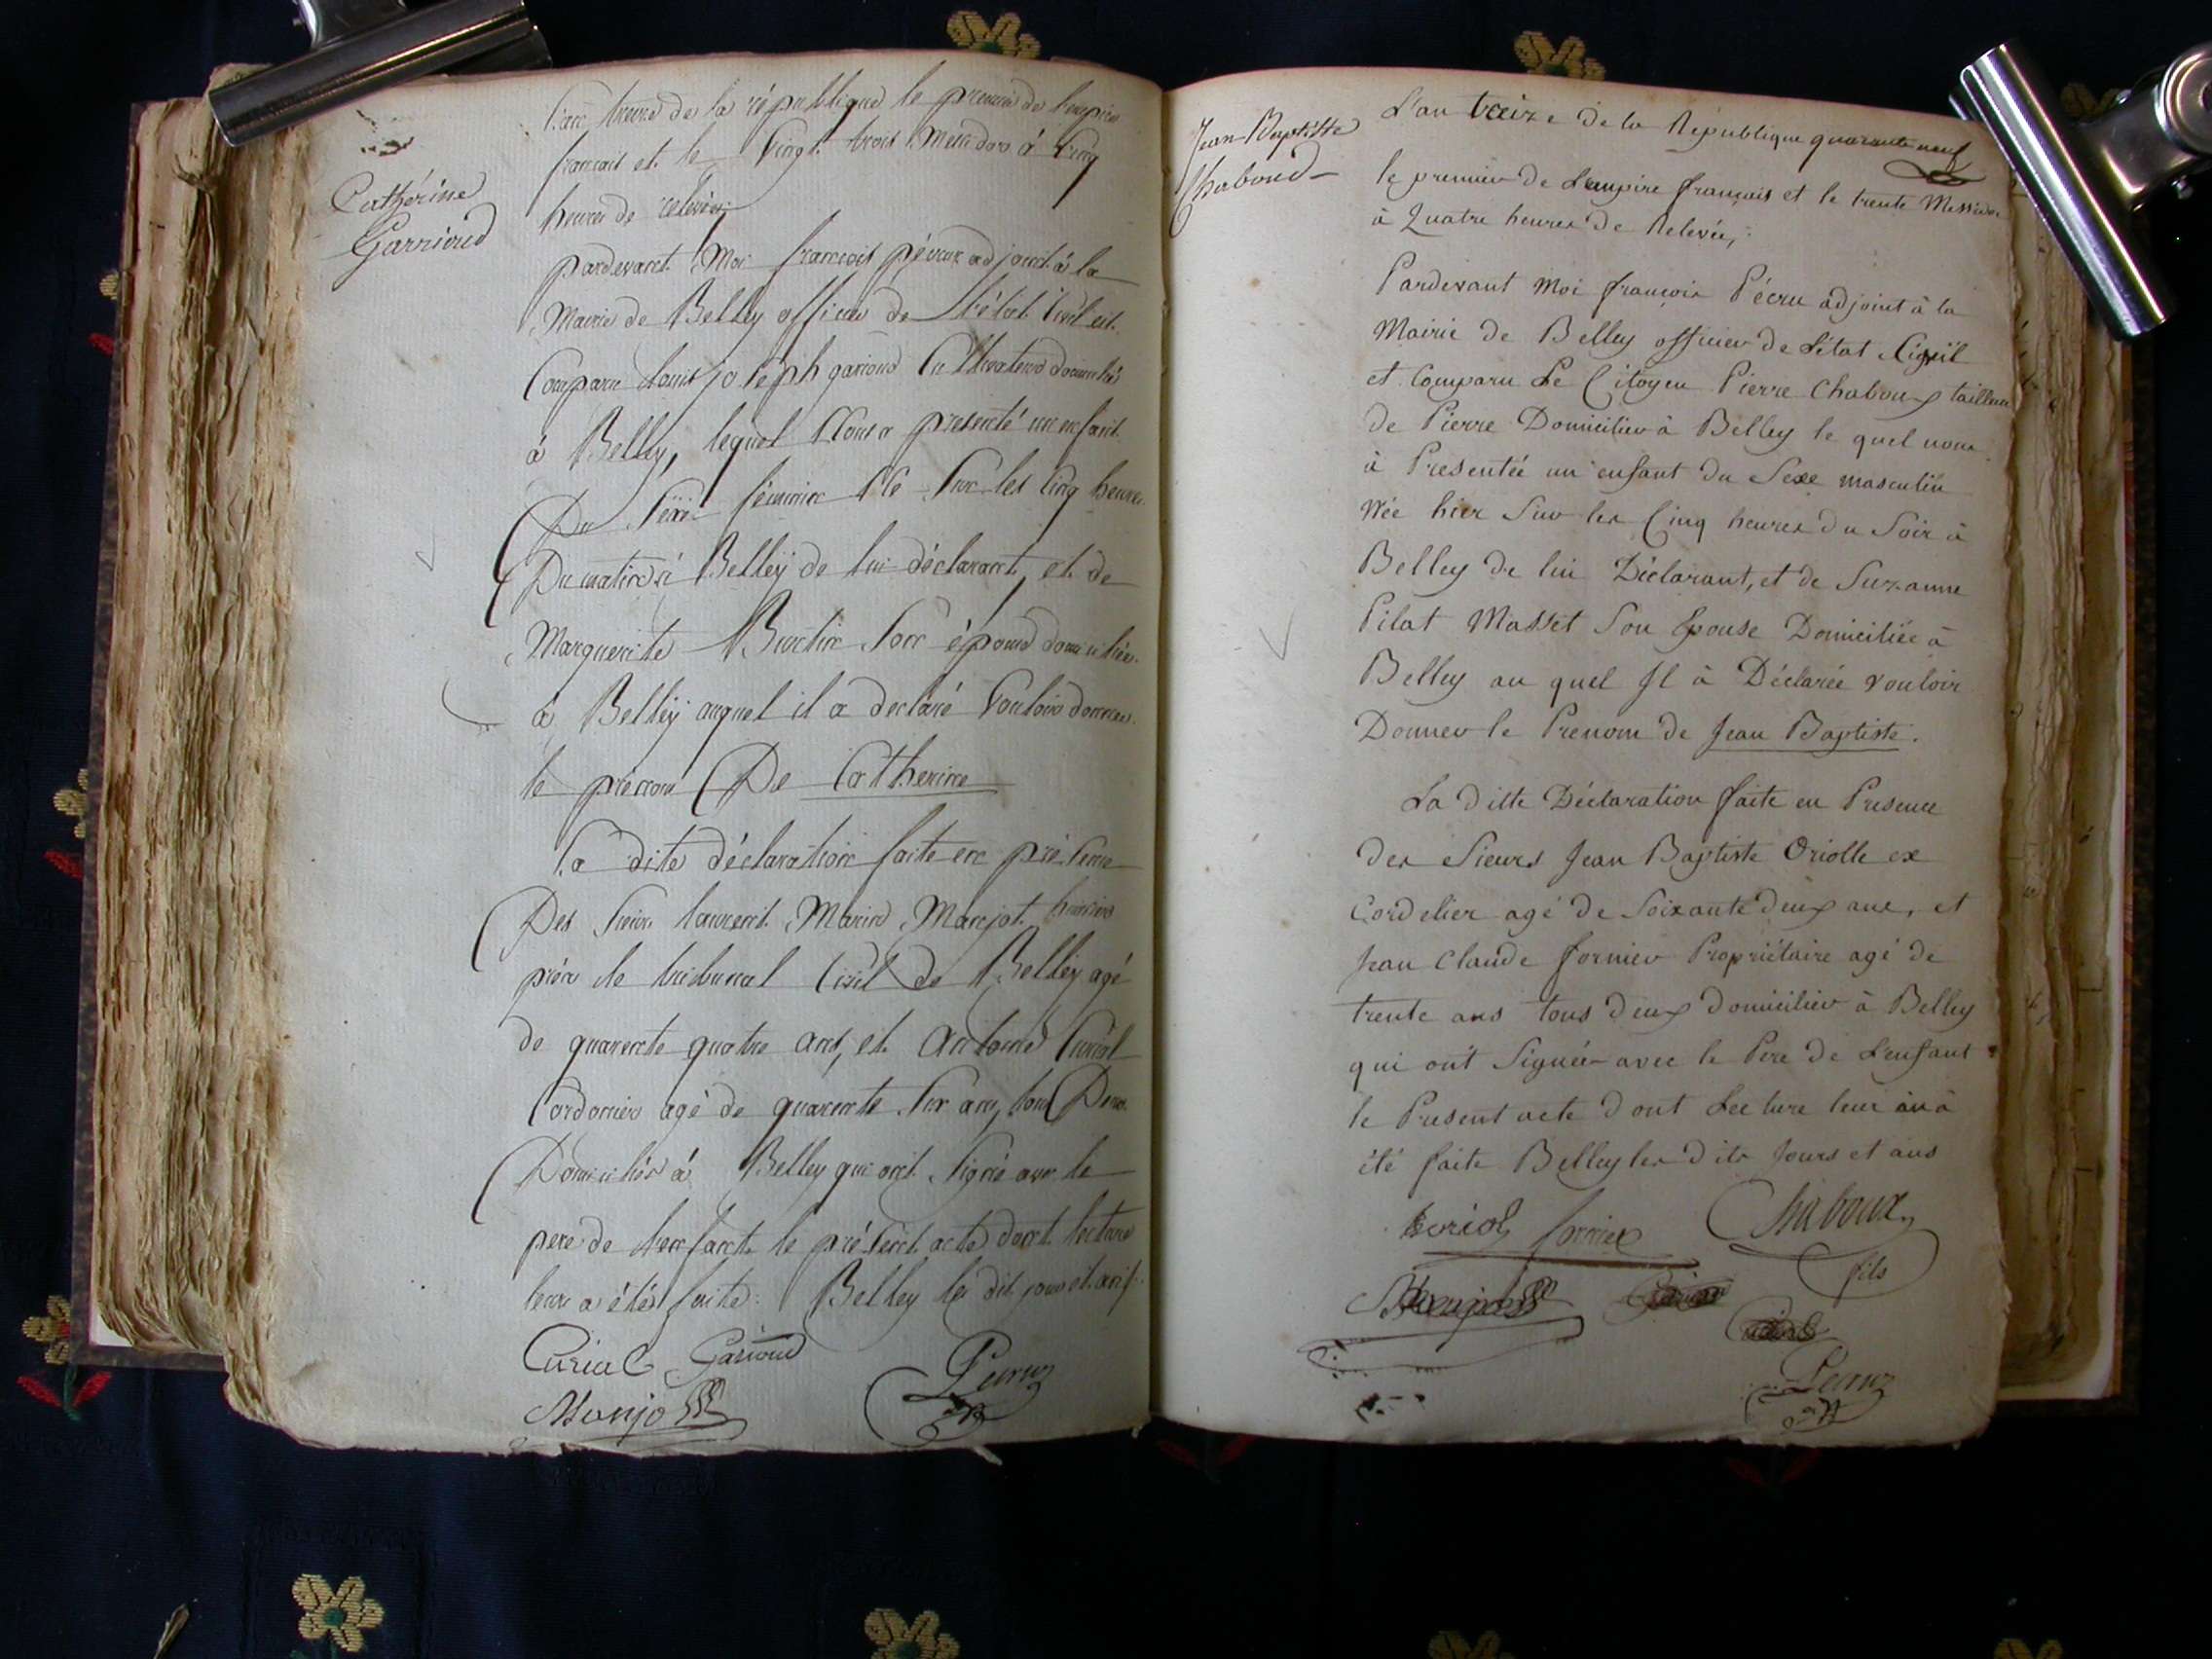 Catherine
Garrioud
L'an treize de la république le premier de l'empire
francais et le Vingt trois Messidor à Cinq
heures de relevée
pardevant Moi francois pécruz adjoint à la
Mairie de Belley officier de l'état Civil est
Comparu Louis joseph garioud Cultivateur domicilié
à Belley, lequel Nous a presenté un enfant
Du Sexe féminin Né Sur les Cinq heures
Du matin à Belley de lui déclarant, et de
Marguerite Burtin Son épouse domiciliée
à Belley auquel il a declaré Vouloir donner
le prénom De Catherine
la dite déclaration faite en présence
Des Sieurs laurent Marin Monjot huissier
près le tribunal Civil de Belley agé
de quarente quatre ans, et Antoine Curial
Cordonier agé de quarente Six ans, tous Deux
Domiciliés à Belley qui ont Signé avec le
pere de l'enfant le présent acte dont lecture
leur a étés faite. Belley les dit jour et an
Curial Garioud
Monjot Pecruz
Jean Baptiste
Chaboud
L'an treize de la République quarante neuf
le premier de L'empire français et le trente Messidor
à Quatre heures de Relevée,
Pardevant Moi françois Pécru adjoint à la
Mairie de Belley officier de L'état Civil
et Comparu Le Citoyen Pierre Chaboux tailleur
de Pierre Domicilier à Belley le quel nous
à Presentée un enfant du Sexe masculin
Née hier Sur les Cinq heures du Soir à
Belley de lui Déclarant, et de Suzanne
Pilat Masset Son Epouse Domiciliée à
Belley au quel Il à Déclarée vouloir
Donner le Prenom de Jean Baptiste.
La ditte Déclaration faite en Presence
des Sieurs Jean Baptiste Oriolle ex
Cordelier agé de Soixante deux ans, et
Jean Claude fornier Propriétaire agé de
trente ans tous deux domicilier à Belley
qui ont Signée avec le Pere de L'enfant
le Present acte dont Lecture leur à
été faite Belley les dits Jours et ans
oriol fornier Chaboux
fils
Pecruz